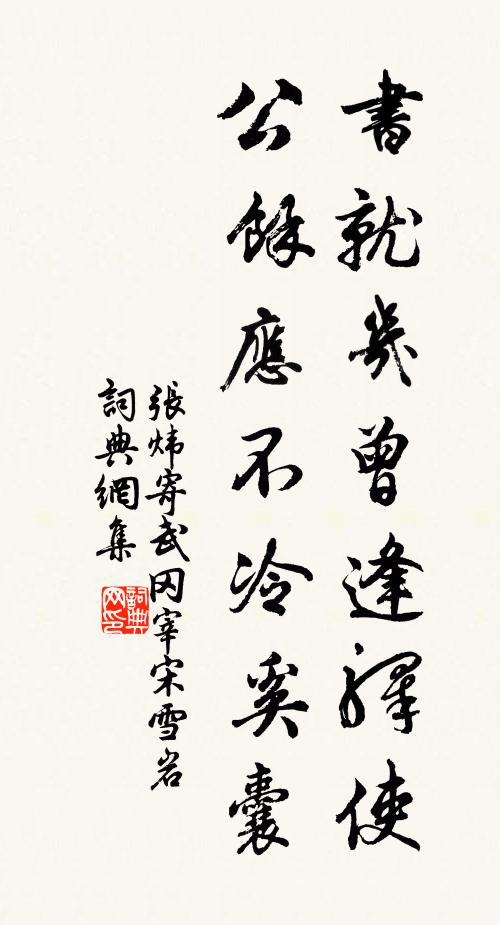 書就幾曾逢驛使
公餘應不冷奚囊
張炜寄武冈宰宋雪岩
詞典網集
詞典网印